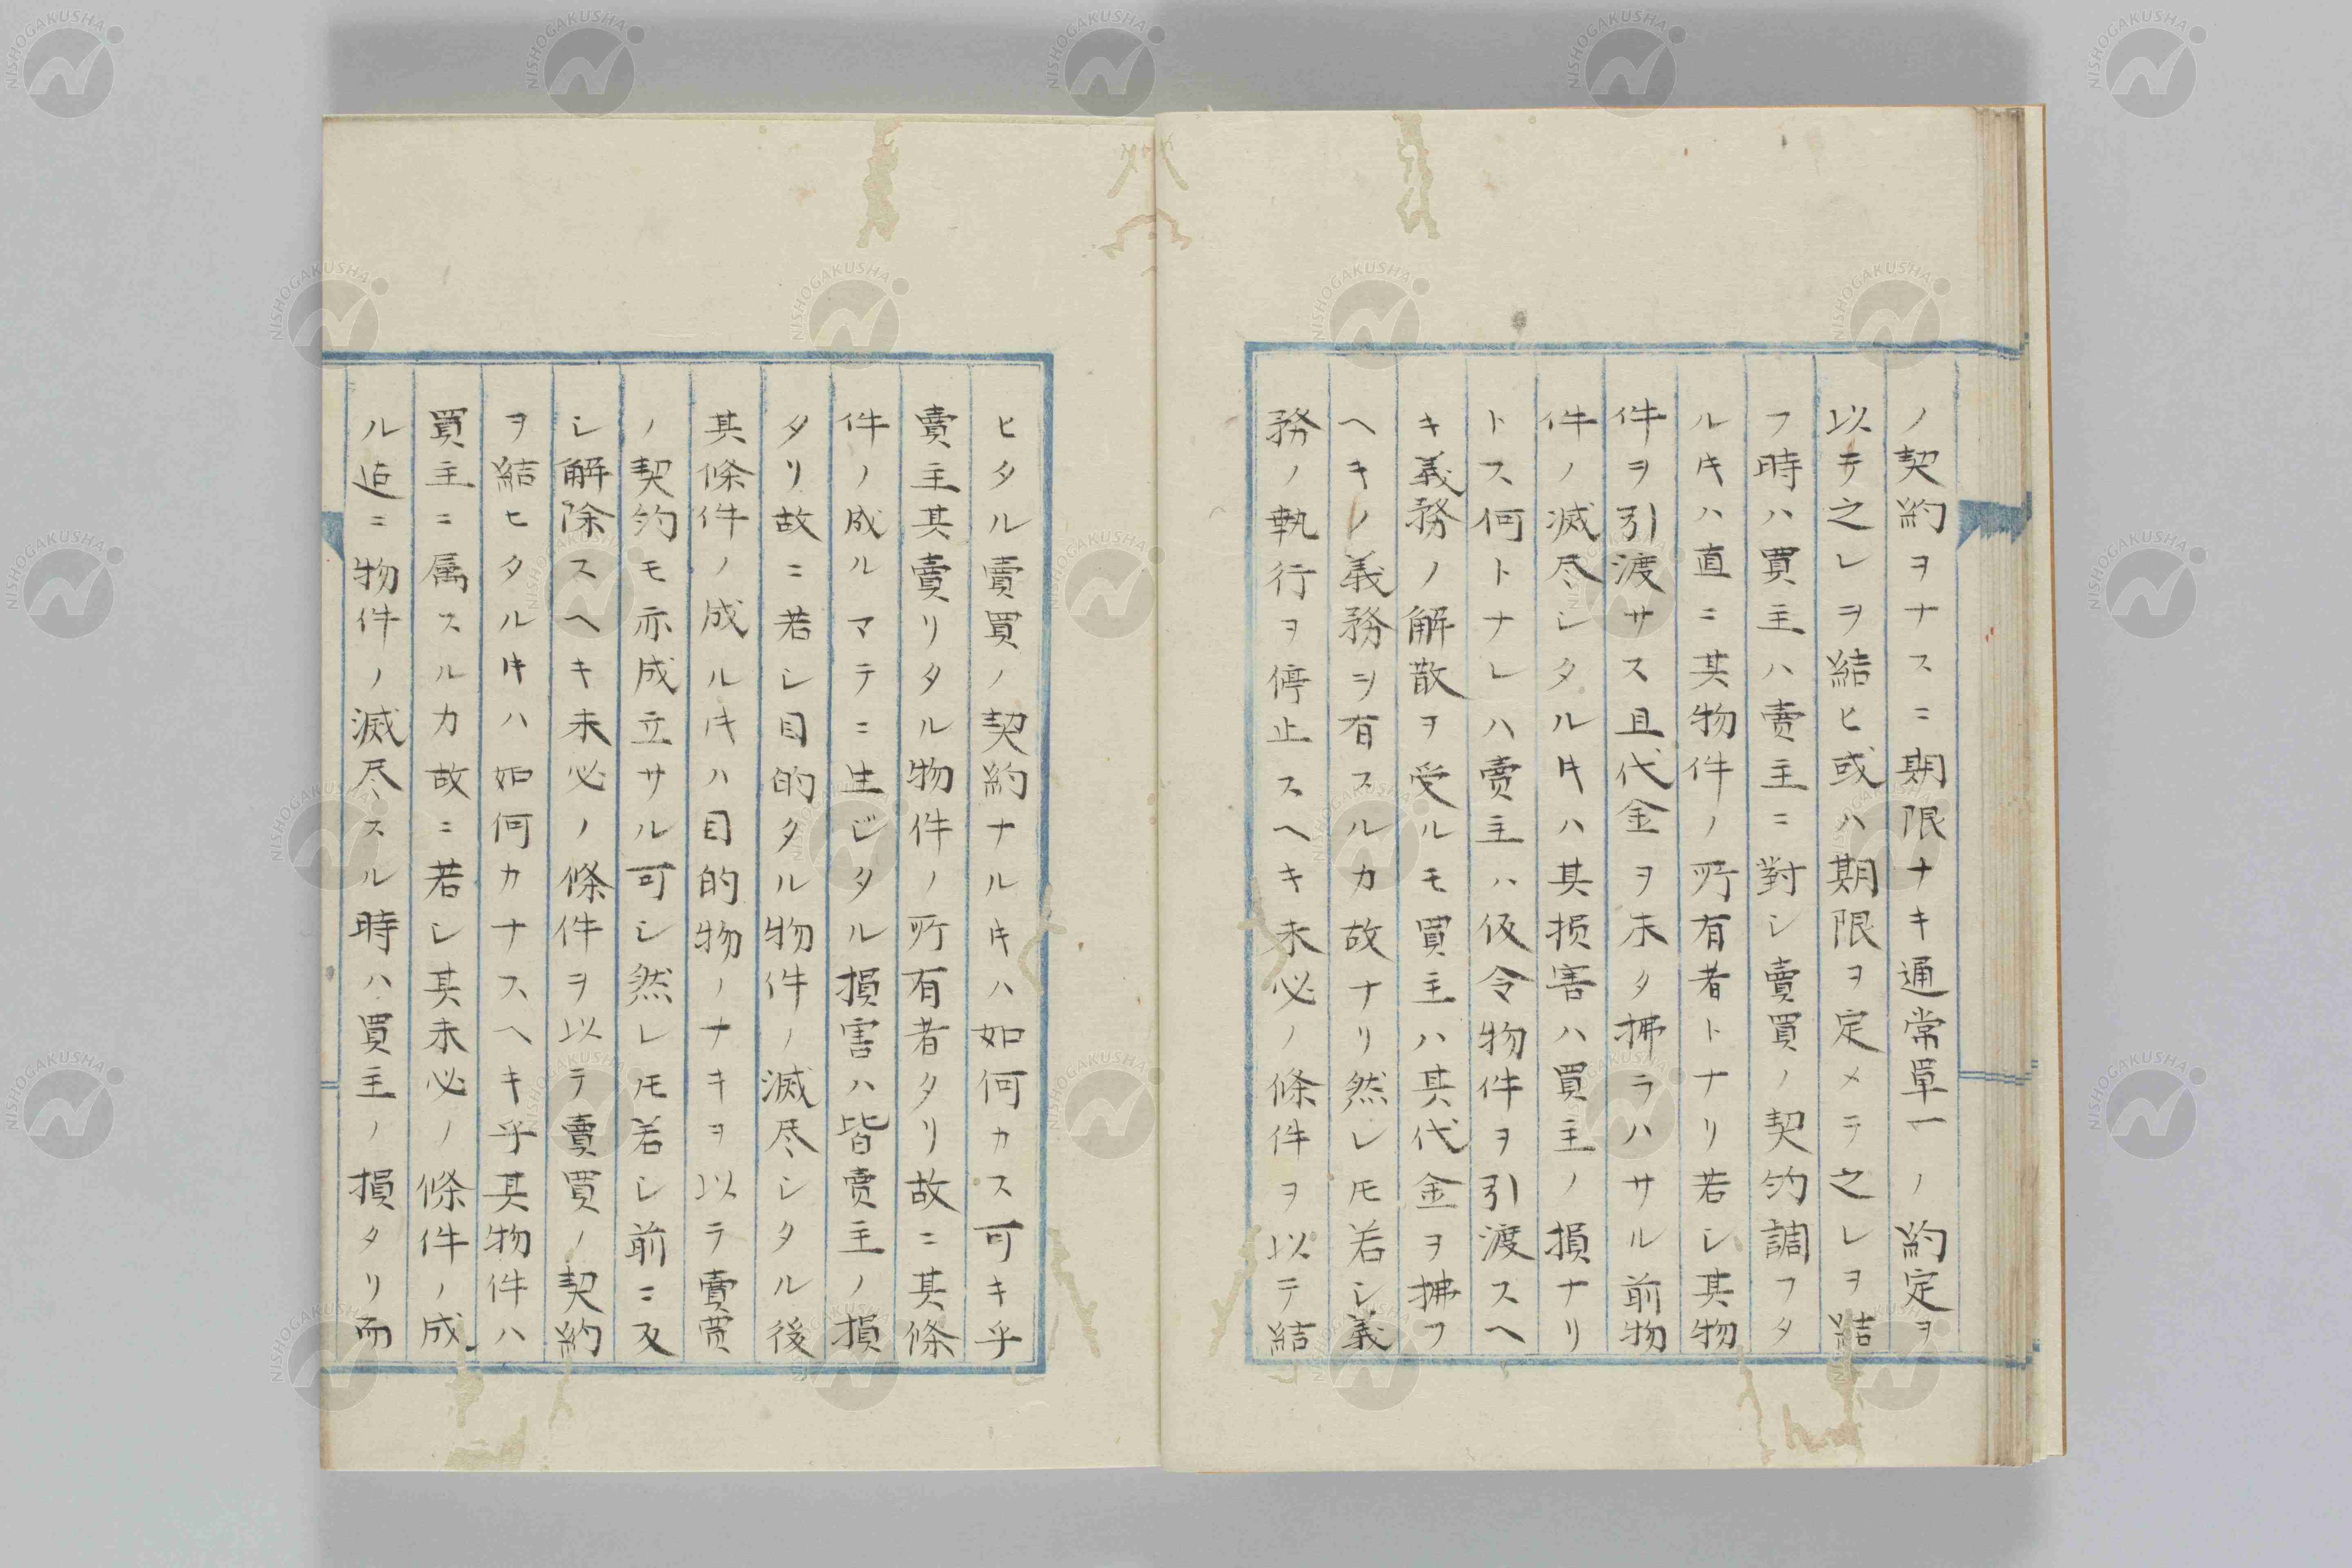 ノ契約ヲナスニ期限ナキ通常単一ノ約定ヲ
以テ之レヲ結ヒ或ハ期限ヲ定メテ之レヲ結
フ時ハ買主ハ賣主ニ對シ賣買ノ契約調フタ
ルキハ直ニ其物件ノ所有者トナリ若シ其物
件ヲ引渡サス且代金ヲ未タ拂ラハサル前物
件ノ滅尽シタルキハ其損害ハ買主ノ損ナリ
トス何トナレハ賣主ハ仮令物件ヲ引渡スヘ
キ義務ノ解散ヲ受ルモ買主ハ其代金ヲ拂フ
ヘキノ義務ヲ有スルカ故ナリ然レ𪜈若シ義
務ノ執行ヲ停止スヘキ未必ノ條件ヲ以テ結
ヒタル賣買ノ契約ナルキハ如何カス可キ乎
賣主其賣リタル物件ノ所有者タリ故ニ其條
件ノ成ルマテニ生ジタル損害ハ皆賣主ノ損
タリ故ニ若シ目的タル物件ノ滅尽シタル後
其條件ノ成ルキハ目的物ノナキヲ以テ賣買
ノ契約モ亦成立サル可シ然レ𪜈若シ前ニ反
シ解除スヘキ未必ノ條件ヲ以テ賣買ノ契約
ヲ結ヒタルキハ如何カナスヘキ乎其物件ハ
買主ニ属スルカ故ニ若シ其未必ノ條件ノ成
ル迠ニ物件ノ滅尽スル時ハ買主ノ損タリ而
NISHOGAKUSHA